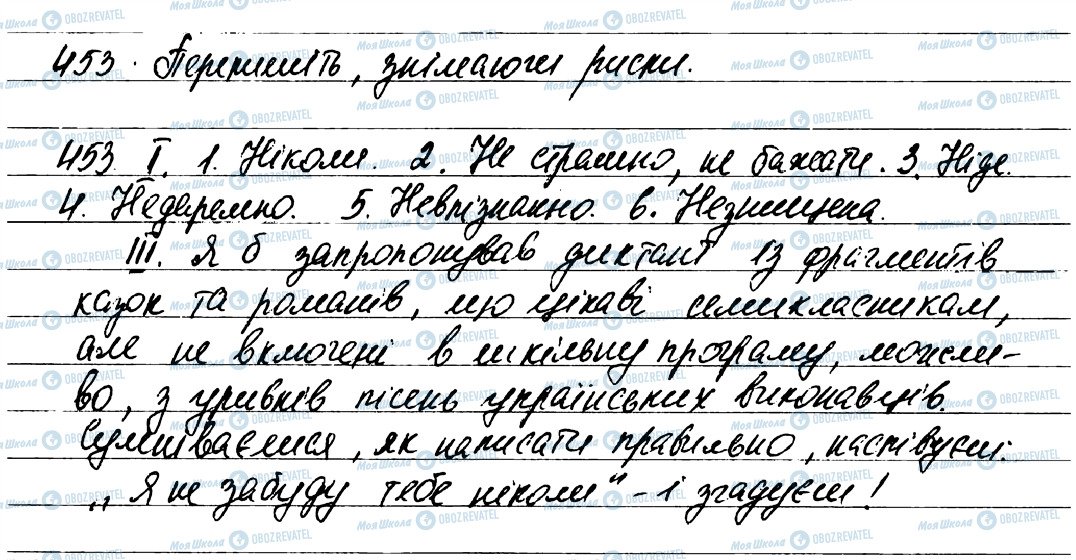 453. Перепишіть, знімаючи риски.
453. I. 1. Ніколи. 2. Не страшно, не бажати. 3. Ніде.
4. Недаремно. 5. Невпізнанно. 6. Незнищенна.
III. Я б запропонував диктант із фрагментів
казок та романів, що цікаві семикласникам,
але не включені в шкільну програму, можли-
во, з уривків пісень українських виконавців.
Сумніваєшся, як написати правильно, наспівуєш:
„Я не забуду тебе ніколи" - і згадуєш!